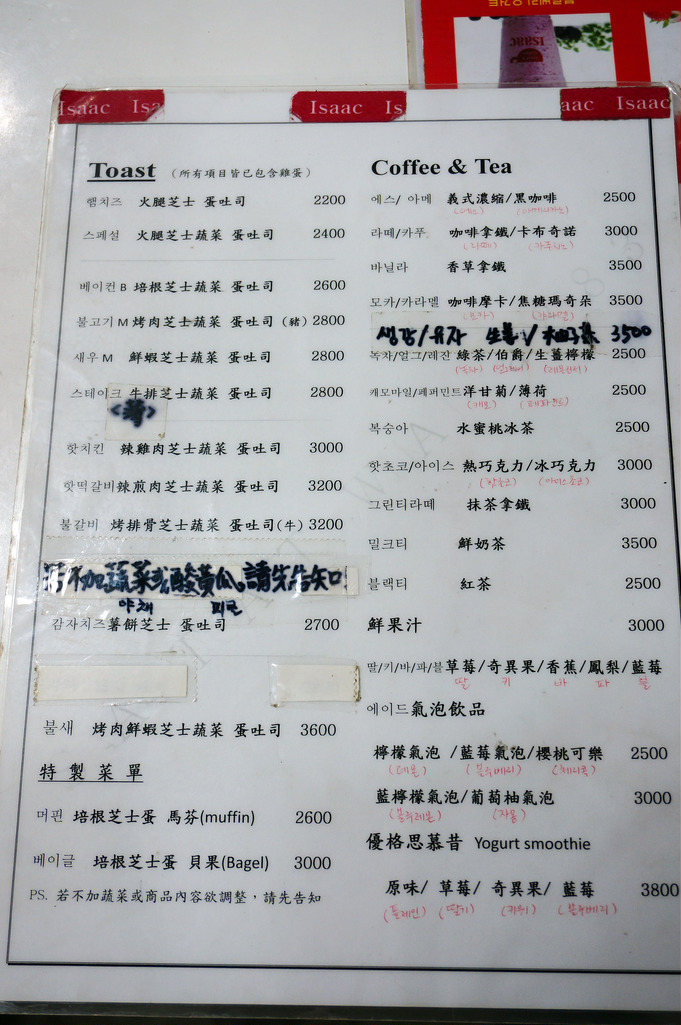 블루베리 요거트
Isaac
Isaac Isa
Isaac Is
aac Isaac
Toast (所有項目皆已包含雞蛋)
햄치즈 火腿芝士 蛋吐司 2200
스페셜 火腿芝士蔬菜 蛋吐司 2400
베이컨 B 培根芝士蔬菜 蛋吐司 2600
불고기 M 烤肉芝士蔬菜 蛋吐司 (豬) 2800
새우 M 鮮蝦芝士蔬菜 蛋吐司 2800
스테이크 牛排芝士蔬菜 蛋吐司 2800
핫치킨 辣雞肉芝士蔬菜 蛋吐司 3000
핫떡갈비 辣煎肉芝士蔬菜 蛋吐司 3200
불갈비 烤排骨芝士蔬菜 蛋吐司(牛) 3200
若不加蔬菜或酸黃瓜。請先告知
야채 피클
감자치즈 薯餅芝士 蛋吐司 2700
불새 烤肉鮮蝦芝士蔬菜 蛋吐司 3600
特製菜單
머핀 培根芝士蛋 馬芬(muffin) 2600
베이글 培根芝士蛋 貝果(Bagel) 3000
PS. 若不加蔬菜或商品內容欲調整，請先告知
Coffee & Tea
에스/ 아메 義式濃縮/黑咖啡 2500
(에스) (아메리카노)
라떼/카푸 咖啡拿鐵/卡布奇諾 3000
(라떼) (카푸치노)
바닐라 香草拿鐵 3500
모카/카라멜 咖啡摩卡/焦糖瑪奇朵 3500
(모카) (카라멜)
생강/유자 生薑/柚子茶 3500
녹차/얼그/레진 綠茶/伯爵/生薑檸檬 2500
(녹차) (얼그레이) (레몬진저)
캐모마일/페퍼민트 洋甘菊/薄荷 2500
(캐모) (페퍼민트)
복숭아 水蜜桃冰茶 2500
핫초코/아이스 熱巧克力/冰巧克力 3000
(핫초코) (아이스초코)
그린티라떼 抹茶拿鐵 3000
밀크티 鮮奶茶 3500
블랙티 紅茶 2500
鮮果汁 3000
딸/키/바/파/블 草莓/奇異果/香蕉/鳳梨/藍莓
딸 키 바 파 블
에이드 氣泡飲品
檸檬氣泡 /藍莓氣泡/櫻桃可樂 2500
(레몬) (블루베리) (체리콕)
藍檸檬氣泡/葡萄柚氣泡 3000
(블루레몬) (자몽)
優格思慕昔 Yogurt smoothie
原味/ 草莓/ 奇異果/ 藍莓 3800
(플레인) (딸기) (키위) (블루베리)